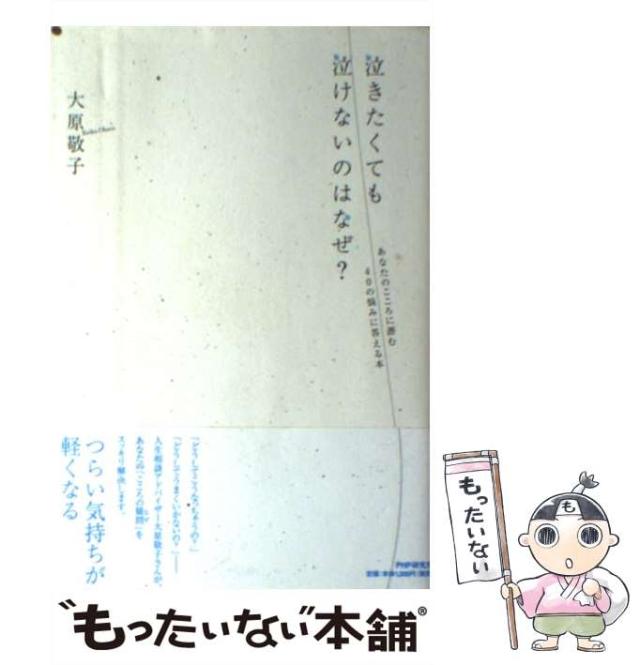 泣きたくても
泣けないのはなぜ？
あなたのこころに潜む
40の悩みに答える本
大原敬子
Keiko Ohara
「どうしてこうなっちゃうの？」
「どうしてうまくいかないの？」——
人生相談アドバイザー・大原敬子さんが、
あなたの「こころの疑問」を
スッキリ解決します。
つらい気持ちが
軽くなる
PHP研究所
“もったいない”本舗®
もったいない
も